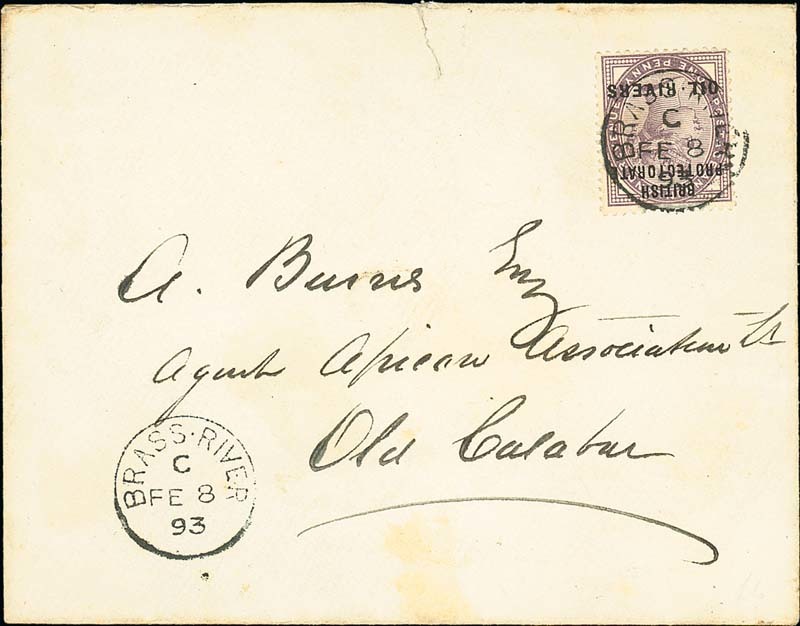 BRITISH
PROTECTORATE
OIL RIVERS
BRASS·RIVER
C
FE 8
93
A. Burns Esq
Agent African Association Ld
Old Calabar
BRASS·RIVER
C
FE 8
93